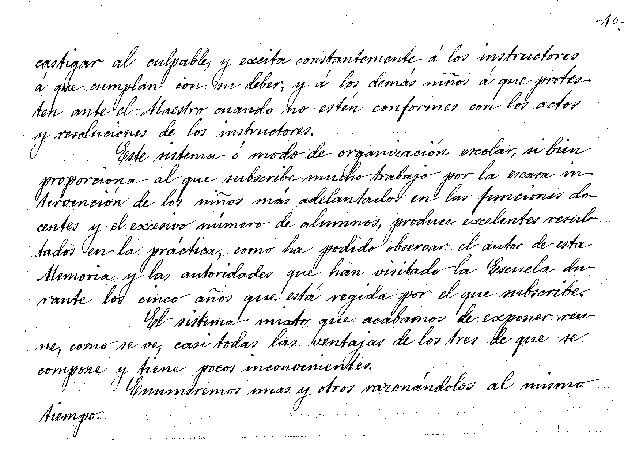 -10-
castigar al culpable, y excita constantemente á los instructores
á que cumplan con su deber, y á los demás niños á que protes-
ten ante el Maestro cuando no estén conformes con los actos
y resoluciones de los instructores.
Este sistema ó modo de organización escolar, si bien
proporciona al que subscribe mucho trabajo por la escasa in-
tervención de los niños más adelantados en las funciones do-
centes y el excesivo número de alumnos, produce excelentes resul-
tados en la práctica, como ha podido observar el autor de esta
Memoria y las autoridades que han visitado la Escuela du-
rante los cinco años que está regida por el que subscribe.
El sistema mixto que acabamos de exponer reu-
ne, como se ve, casi todas las ventajas de los tres de que se
compone y tiene pocos inconvenientes.
Enumeremos unas y otros razonándolos al mismo
tiempo.